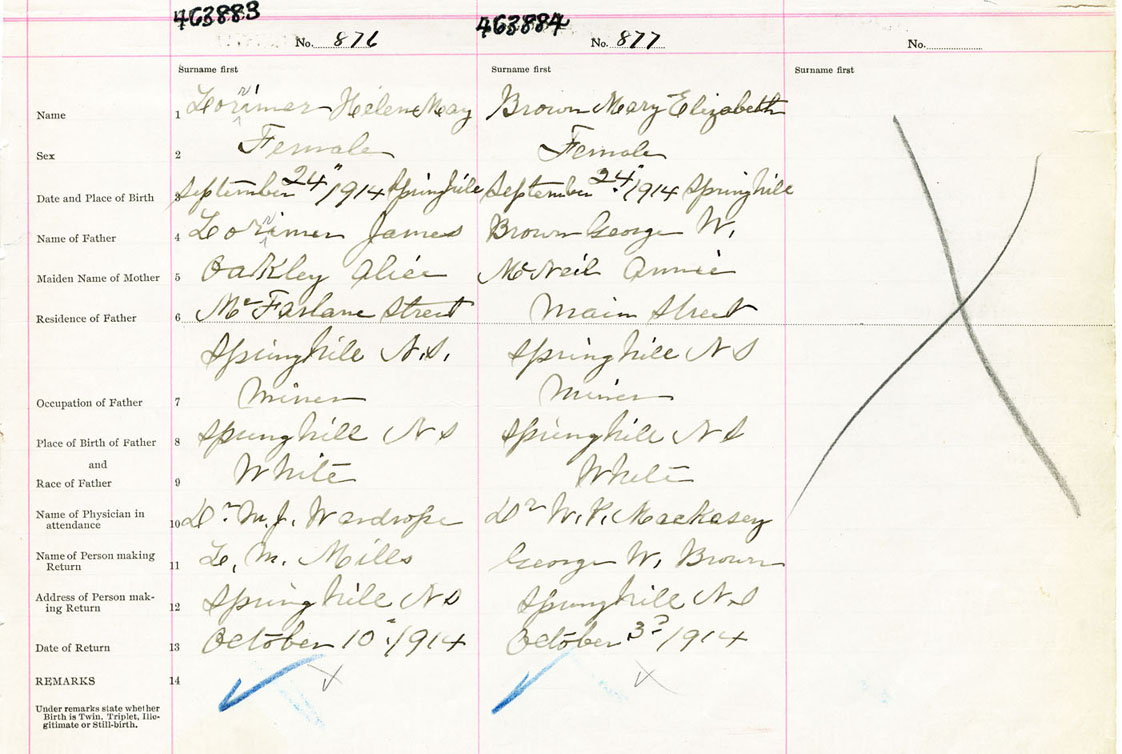 463883 463884
No. 876 No. 877 No.
Surname first Surname first Surname first
Name 1 Lorimer Helen May Brown Mary Elizabeth
Sex 2 Female Female
Date and Place of Birth 3 September 24"/1914 Springhill September 24"/1914 Springhill
Name of Father 4 Lorimer James Brown George W.
Maiden Name of Mother 5 Oakley Alice McNeil Annie
Residence of Father 6 McFarlane Street Main Street
Springhill N.S. Springhill N S
Occupation of Father 7 Miner Miner
Place of Birth of Father 8 Springhill N S Springhill N S
and
Race of Father 9 White White
Name of Physician in
attendance 10 Dr. M.J. Wardrope Dr W. Mackasey
Name of Person making
Return 11 M. Mills George W. Brown
Address of Person mak-
ing Return 12 Springhill N S Springhill N.S
Date of Return 13 October 10"/1914 October 3d/1914
REMARKS 14
Under remarks state whether
Birth is Twin, Triplet, Ille-
gitimate or Still-birth.